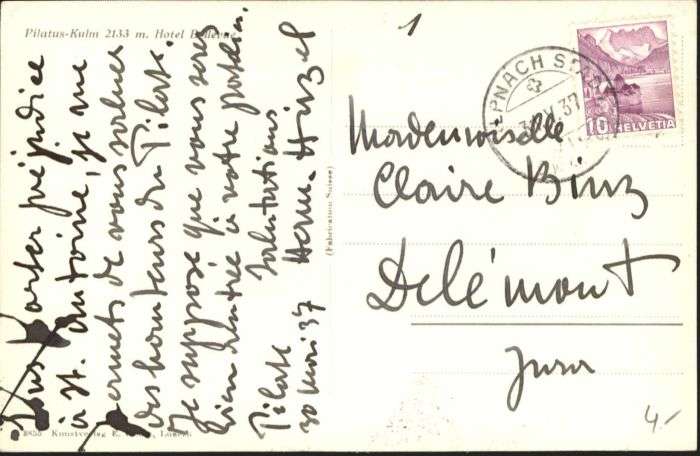 Pilatus-Kulm 2133 m. Hotel Bellevue
1
Sans porter préjudice
à St. Antoine, je me
permets de vous saluer
des hauteurs du Pilate.
Je suppose que vous serez
bien rentrée à votre
Salutations
Pilate
30 Mai 37 Herm. Hinzel
(Fabrication Suisse)
8850 Kunstverlag E.
ALPNACH
V.37
10 HELVETIA
Mademoiselle
Claire Binz
Delémont
Jura
4/-